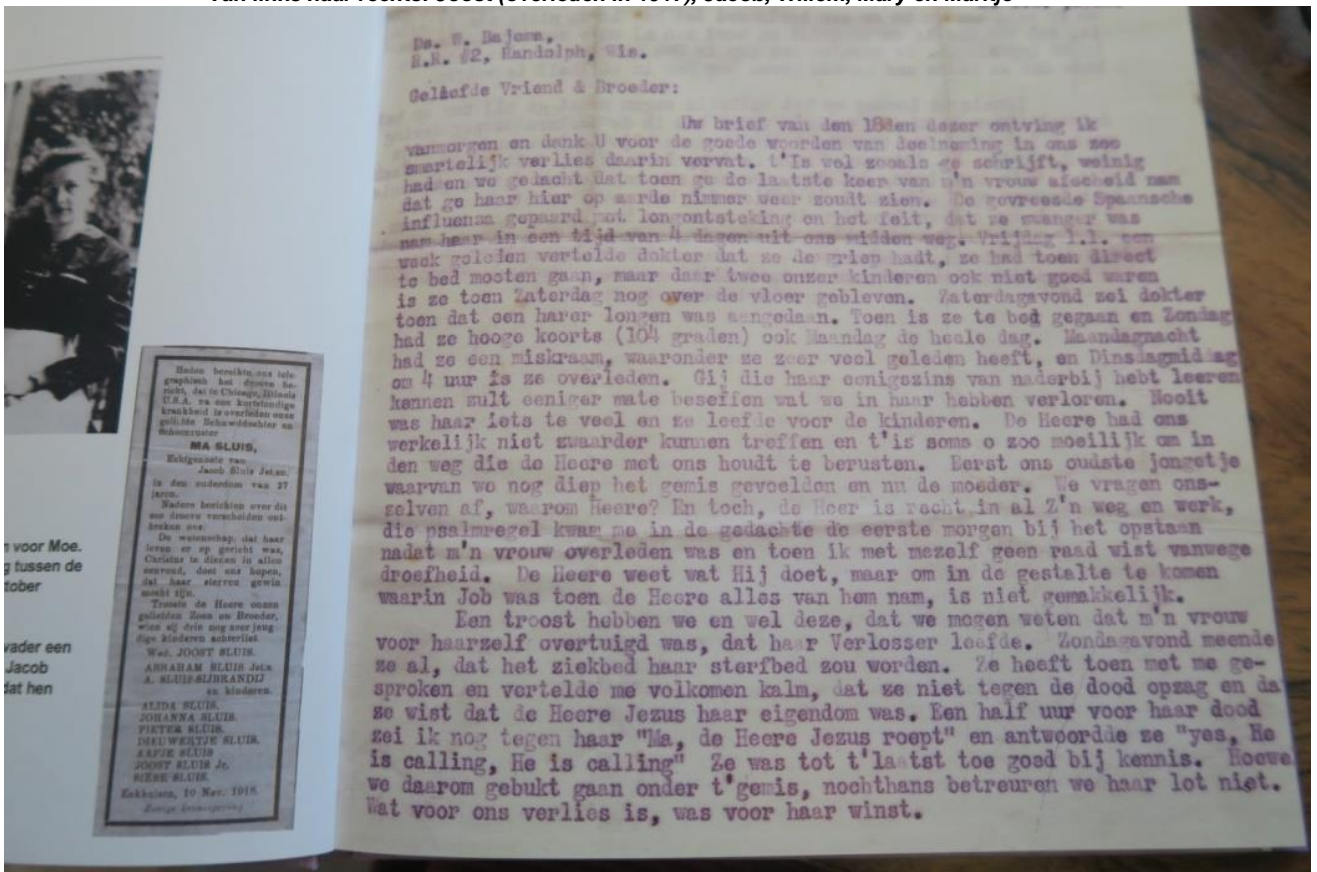 Van links naar rechts: Joost (overleden in 1917), Jacob, Willem, Mary en Marktje
voor Moe.
g tussen de
tober
vader een
Jacob
dat hen
Heden bereikte ons tele-
graphisch het droeve be-
richt, dat te Chicago, Illinois
U.S.A. na een kortstondige
krankheid is overleden onze
geliefde Schoondochter en
Schoonzuster
MA SLUIS,
Echtgenoote van
Jacob Sluis Jst.zn.
in den ouderdom van 37
jaren.
Nadere berichten over dit
zoo droeve verscheiden ont-
breken ons.
De wetenschap, dat haar
leven er op gericht was,
Christus te dienen in allen
eenvoud, doet ons hopen,
dat haar sterven gewin
mocht zijn.
Trooste de Heere onzen
geliefden Zoon en Broeder,
wien zij drie nog zeer jeug-
dige kinderen achterliet.
Wed. JOOST SLUIS.
ABRAHAM SLUIS Jst.zn.
A. SLUIS-SIJBRANDIJ
en kinderen.
ALIDA SLUIS.
JOHANNA SLUIS.
PIETER SLUIS.
DIEUWERTJE SLUIS.
AAFJE SLUIS
JOOST SLUIS Jr.
SIEBE SLUIS.
Enkhuizen, 10 Nov. 1918.
Eenige kennisgeving
Ds. W. Bajema,
R.R. #2, Randolph, Wis.
Geliefde Vriend & Broeder:
Uw brief van den 18den dezer ontving ik
vanmorgen en dank U voor de goede woorden van deelneming in ons zoo
smartelijk verlies daarin vervat. t'Is wel zooals ge schrijft, weinig
hadden we gedacht dat toen ge de laatste keer van m'n vrouw afscheid nam
dat ge haar hier op aarde nimmer weer zoudt zien. De gevreesde Spaansche
influenza gepaard met longontsteking en het feit, dat ze zwanger was
nam haar in een tijd van 4 dagen uit ons midden weg. Vrijdag l.l. een
week geleden vertelde dokter dat ze de griep hadt, ze had toen direct
te bed moeten gaan, maar daar twee onzer kinderen ook niet goed waren
is ze toen Zaterdag nog over de vloer gebleven. Zaterdagavond zei dokter
toen dat een harer longen was aangedaan. Toen is ze te bed gegaan en Zondag
had ze hooge koorts (104 graden) ook Maandag de heele dag. Maandagnacht
had ze een miskraam, waaronder ze zeer veel geleden heeft, en Dinsdagmiddag
om 4 uur is ze overleden. Gij die haar eenigszins van naderbij hebt leeren
kennen zult eeniger mate beseffen wat we in haar hebben verloren. Nooit
was haar iets te veel en ze leefde voor de kinderen. De Heere had ons
werkelijk niet zwaarder kunnen treffen en t'is soms o zoo moeilijk om in
den weg die de Heere met ons houdt te berusten. Eerst ons oudste jongetje
waarvan we nog diep het gemis gevoelden en nu de moeder. We vragen ons-
zelven af, waarom Heere? En toch, de Heer is recht in al Z'n weg en werk,
die psalmregel kwam me in de gedachte de eerste morgen bij het opstaan
nadat m'n vrouw overleden was en toen ik met mezelf geen raad wist vanwege
droefheid. De Heere weet wat Hij doet, maar om in de gestalte te komen
waarin Job was toen de Heere alles van hem nam, is niet gemakkelijk.
Een troost hebben we en wel deze, dat we mogen weten dat m'n vrouw
voor haarzelf overtuigd was, dat haar Verlosser leefde. Zondagavond meende
ze al, dat het ziekbed haar sterfbed zou worden. Ze heeft toen met me ge-
sproken en vertelde me volkomen kalm, dat ze niet tegen de dood opzag en da
ze wist dat de Heere Jezus haar eigendom was. Een half uur voor haar dood
zei ik nog tegen haar "Ma, de Heere Jezus roept" en antwoordde ze "yes, He
is calling, He is calling" Ze was tot t'laatst toe goed bij kennis. Hoewe
we daarom gebukt gaan onder t'gemis, nochthans betreuren we haar lot niet.
Wat voor ons verlies is, was voor haar winst.